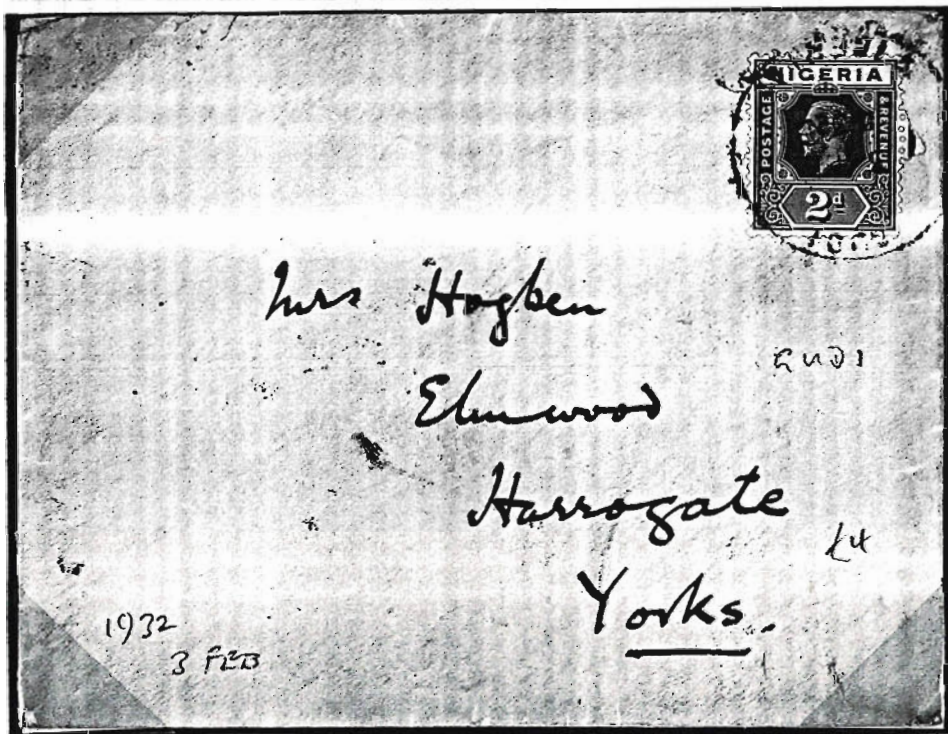 NIGERIA
POSTAGE
& REVENUE
2d
Mrs Hogben
GUDI
Elmwood
Harrogate
£4
Yorks.
1932
3 FEB